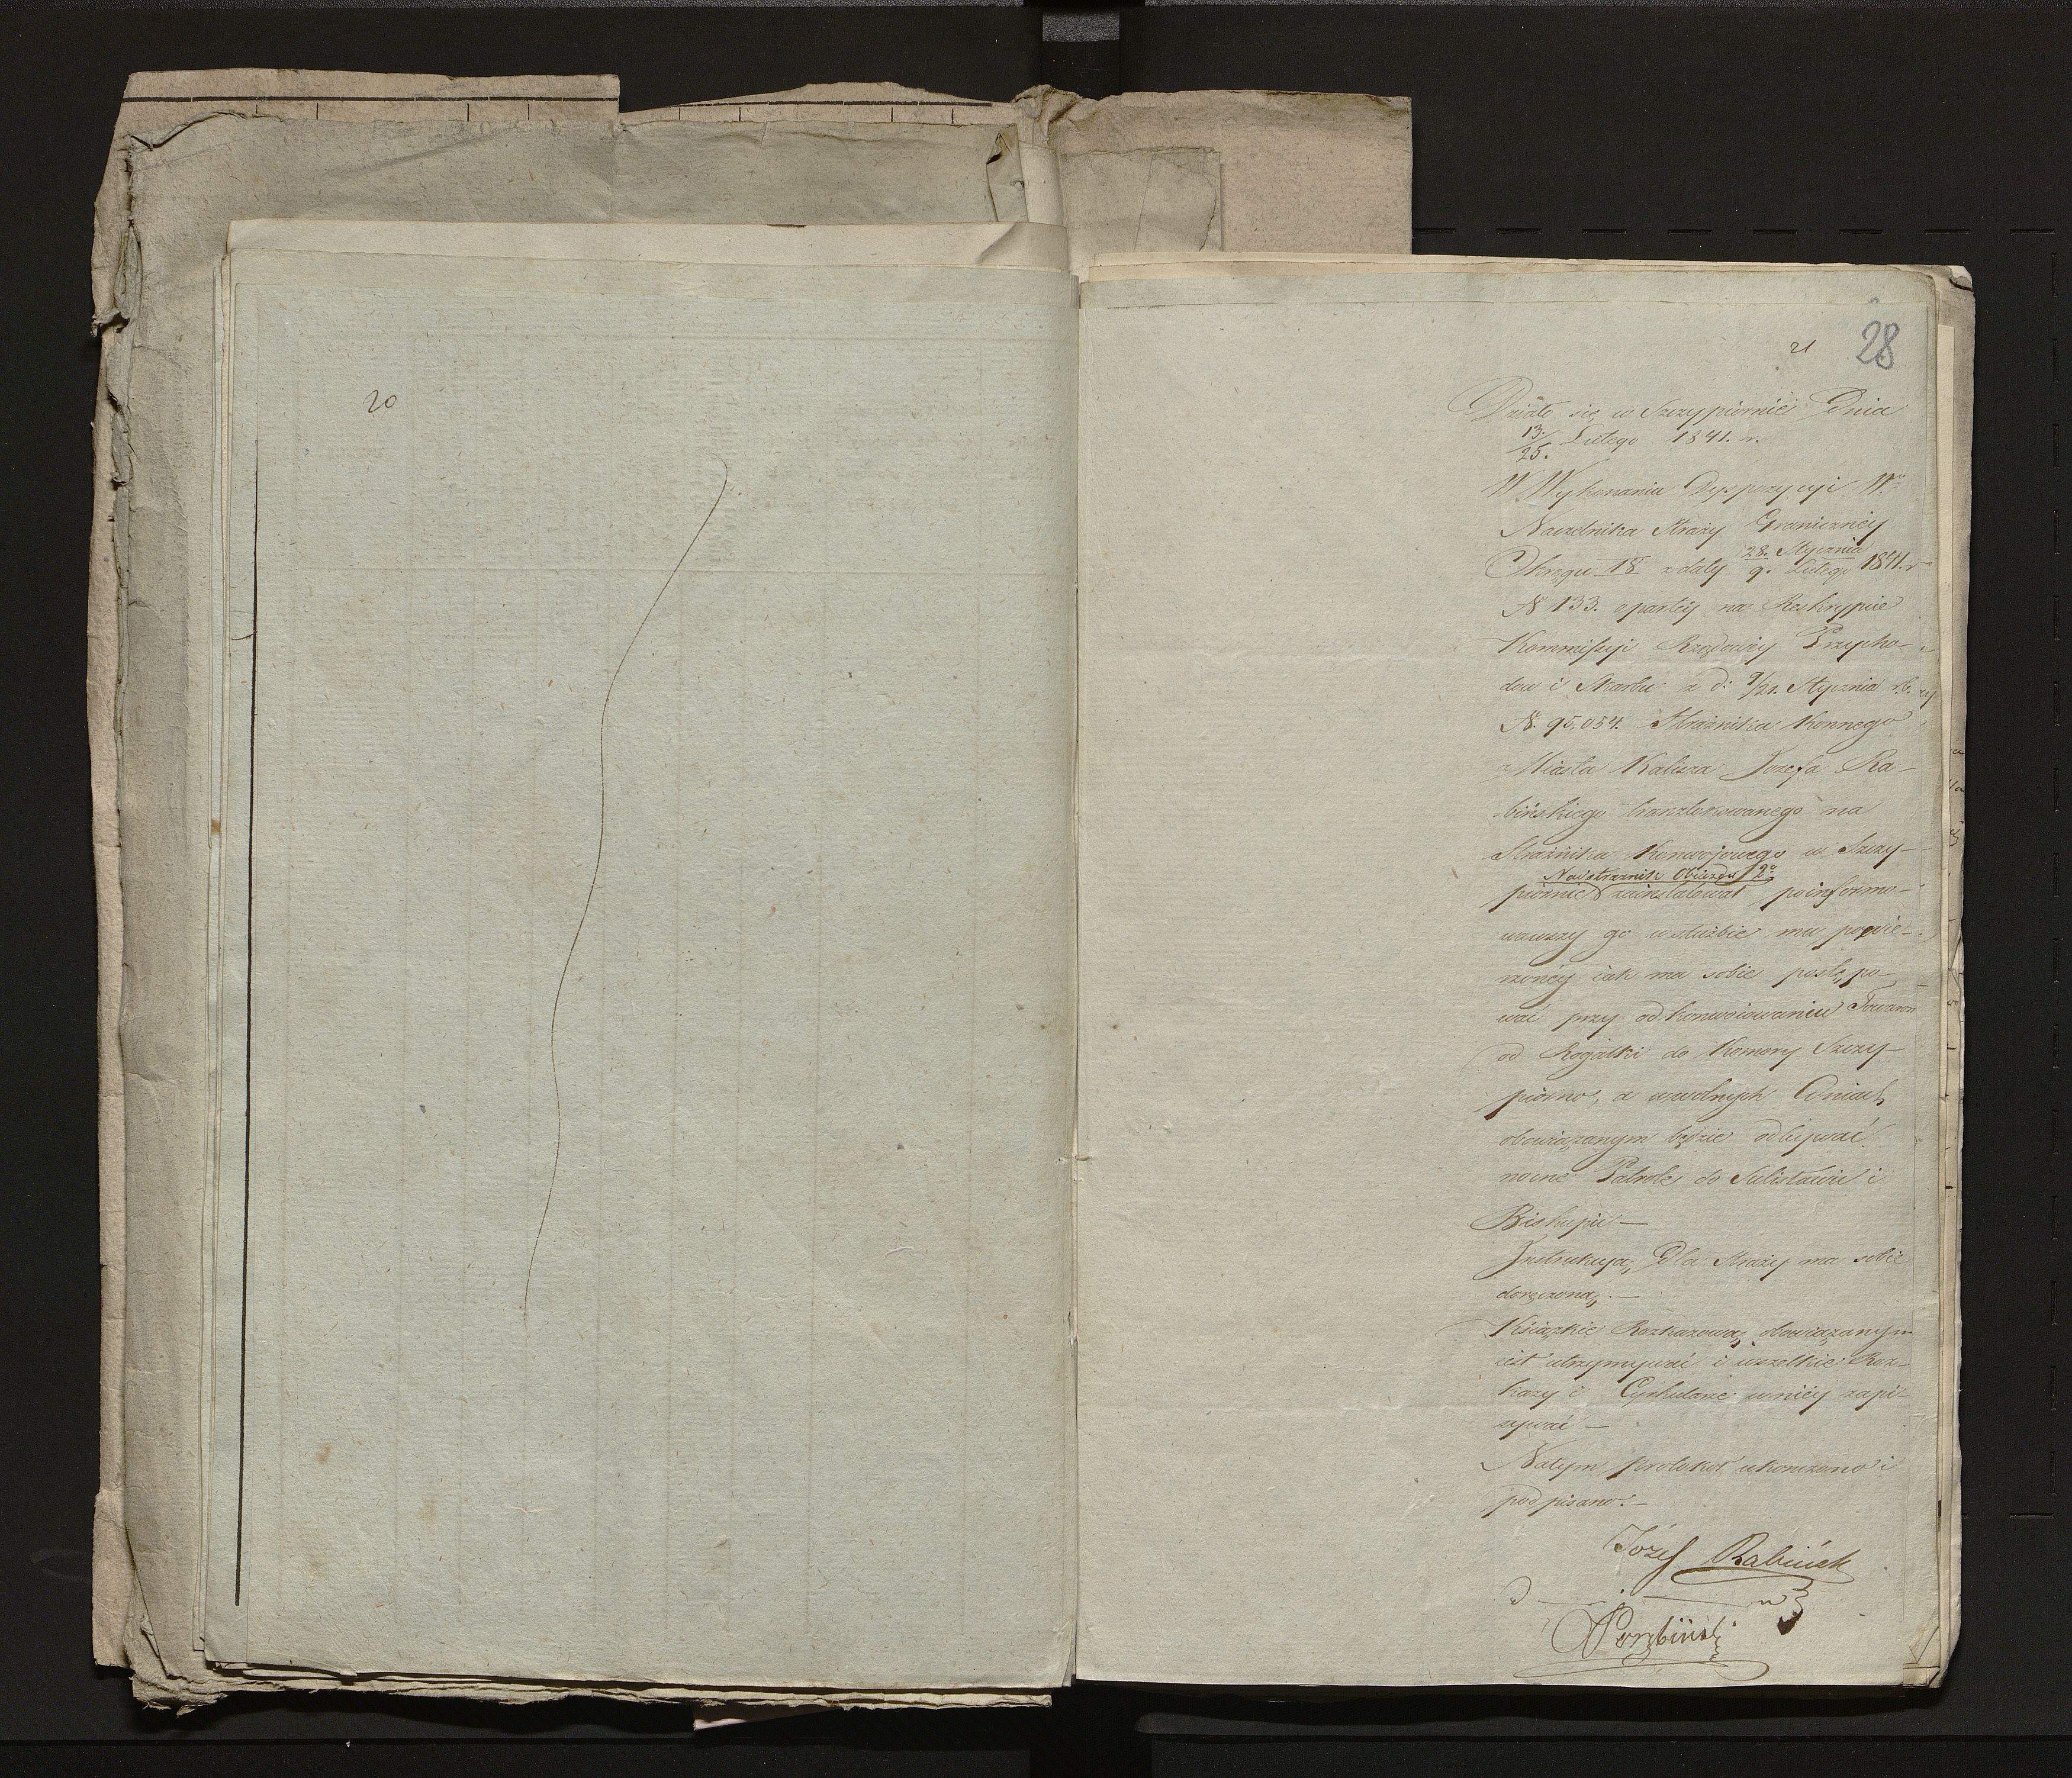 20
21
28
Działo się w Szczypiornie Dnia
13./25. Lutego 1841. r.
W Wykonaniu Dyspozycyi W.
Naczelnika Straży Graniczney
Okręgu 18 z daty 28. Stycznia/9. Lutego 1841. r
N 133. opartéy na Reskrypcie
Kommissyi Rządowéy Przycho-
dow i Skarbu z d: 9/21. Stycznia r.b.
N. 95,054. Strażnika Konnego
z Miasta Kalisza Jozefa Ra-
bińskiego tranzlokowanego na
Strażnika Konwojowego w Szczy-
Nadstrażnik Obiazdu 2º
piornie zainstalował poinformo-
wawszy go w służbie mu powie-
rzonéy iak ma sobie postępo-
wać przy odkonwoiowaniu Towarow
od Rogatki do Komory Szczy-
piorno, a w wolnych Dniach
obowiązanym będzie odbywać
nocne Patrole do Sulisławic i
Biskupic —
Instrukcyą, Dla Straży ma sobie
doręczoną. —
Książkie Rozkazową obowiązanym
iest utrzymywać i wszelkie Roz-
kazy i Cyrkularze w niéy zapi-
sywać —
Natym protokoł ukończono i
podpisano. —
Józef Rabiński